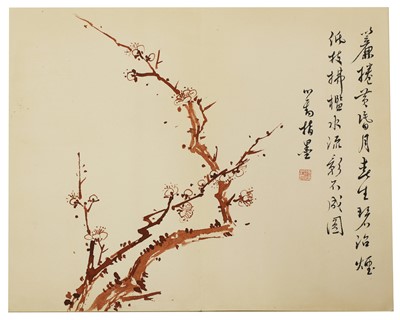 簾捲黃昏月春生碧沼煙
低枝拂檻水流影不成圓
心畬指墨